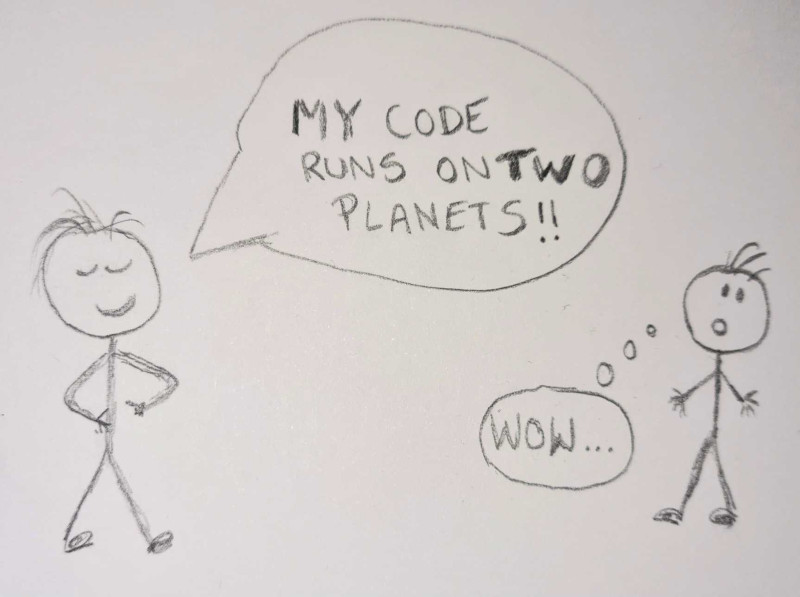 MY CODE
RUNS ON TWO
PLANETS!!
WOW...